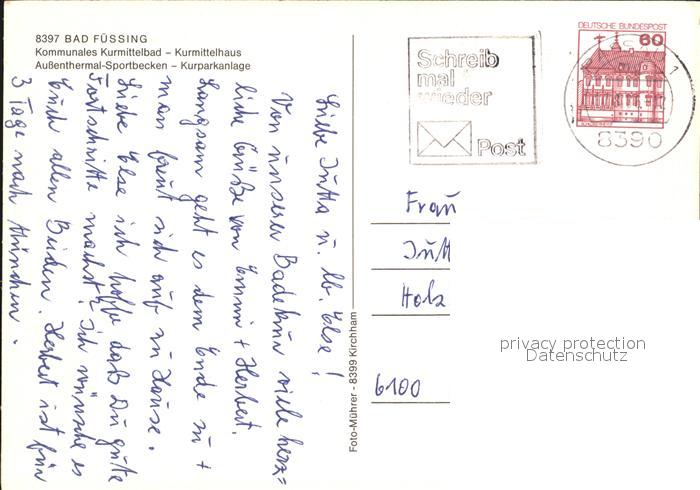 8397 BAD FÜSSING
Kommunales Kurmittelbad – Kurmittelhaus
Außenthermal-Sportbecken – Kurparkanlage
Liebe Jutta u. lb. Else!
Von unserer Badekur viele herz=
liche Grüße von Emmi + Herbert.
Langsam geht es dem Ende zu +
man freut sich auf zu Hause.
Liebe Else ich hoffe daß Du gute
Fortschritte machst? Ich wünsche es
Euch allen Beiden. Herbert ist für
3 Tage nach München.
Foto-Mührer - 8399 Kirchham
Schreib
mal
wieder
Post
DEUTSCHE BUNDESPOST
60
8390
Frau
Jutt
Holz
6100
privacy protection
Datenschutz